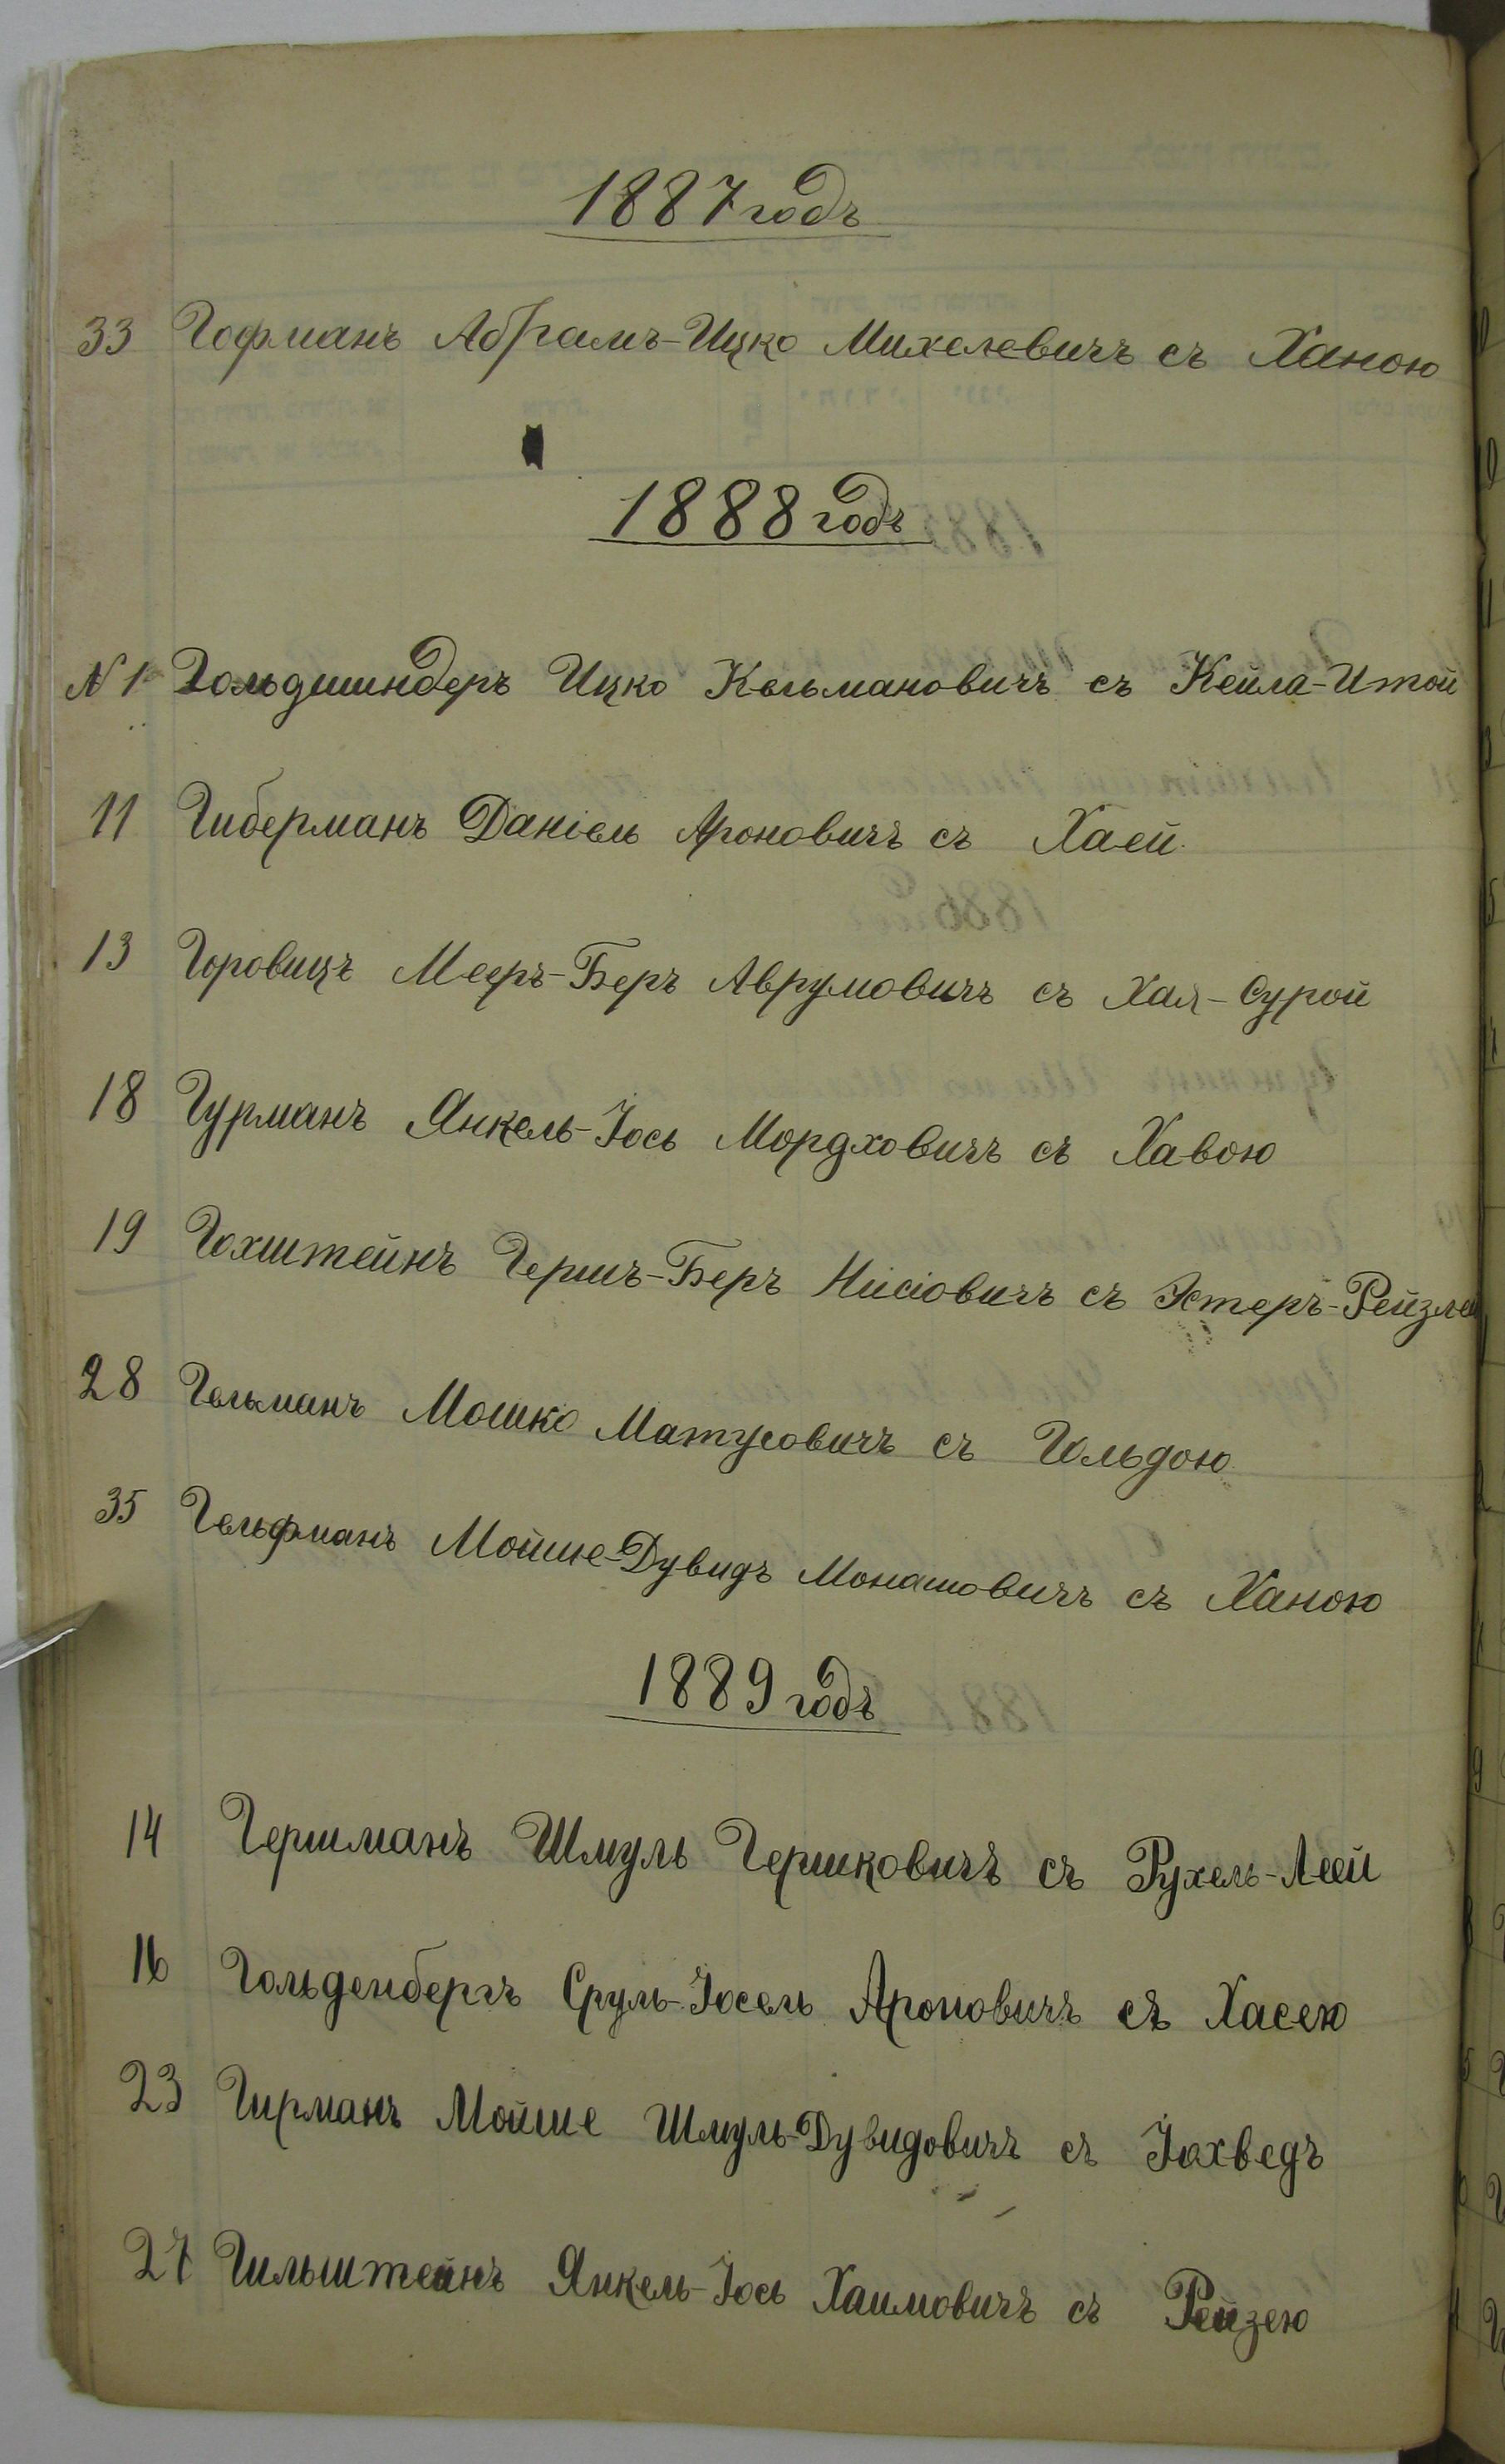 1887 годъ
33 Гофманъ Абрамъ-Ицко Михелевичъ съ Ханою
1888 годъ
N 1 Гольдшиндеръ Ицко Кельмановичъ съ Кейла-Итой
11 Гиберманъ Даніель Ароновичъ съ Хаей
13 Горовицъ Мееръ-Беръ Аврумовичъ съ Хая-Сурой
18 Гурманъ Янкель-Іось Мордховичъ съ Хавою
19 Гохштейнъ Гершъ-Беръ Нисіовичъ съ Эстеръ-Рейзлей
28 Гельманъ Мошко Матусовичъ съ Гольдою
35 Гельфманъ Мойше-Дувидъ Монашовичъ съ Ханою
1889 годъ
14 Гершманъ Шмуль Гершковичъ съ Рухель-Леей
16 Гольденбергъ Сруль-Іосель Ароновичъ съ Хасею
23 Гирманъ Мойше Шмуль-Дувидовичъ съ Іохведъ
27 Гильштейнъ Янкель-Іось Хаимовичъ съ Рейзею